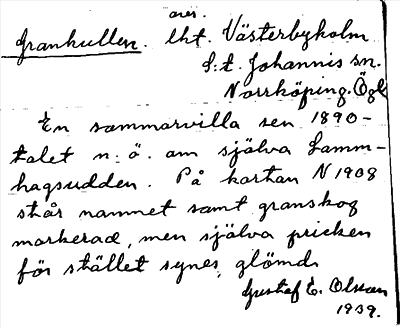 avs.
Granhullen. lht. Västerbyholm
S:t. Johannis sn.
Norrköping. Ögl
En sommarvilla sen 1890-
talet n. ö. om själva Lamm-
hagsudden. På kartan N 1908
står namnet samt granskog
markerad, men själva pricken
för stället synes glömd.
Gustaf E. Olsson
1939.